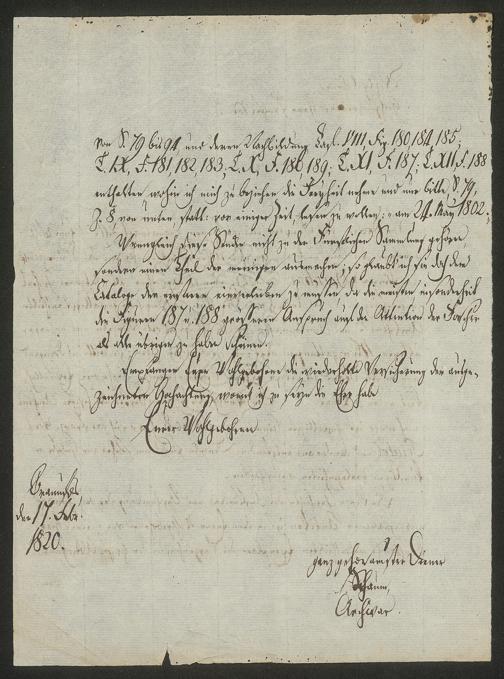 von S. 79 bis 94. und deren Nachbildung Tafl. VIII. Fig. 180, 184, 185;
T. IX, F. 181, 182, 183; T. X, F. 186, 189; T. XI F. 187; T. XII F. 188
enthalten wohin ich mich zu beziehen die Freyheit nehme und nur bitte, S. 79,
Z. 8 von unten statt: vor einiger Zeit, lesen zu wollen: am 24. May 1802.
Wenngleich diese Stücke nicht zu der Fürstlichen Sammlung gehören
sondern einen Theil der meinigen ausmachen; so glaubte ich sie doch dem
Cataloge der ersteren einverleiben zu müssen, da die meisten insonderheit
die Figuren 187 u. 188 größeren Anspruch auf die Attention der Forscher
als alle übrigen zu haben scheinen.
Empfangen Euer Wohlgebohren die wiederholte Versicherung der ausge-
zeichneten Hochachtung, womit ich zu seyn die Ehre habe
Euer Wohlgebohren
Braunfels
den 17. Febr.
1820.
ganz gehorsamster Diener
Schaum,
Archivar.